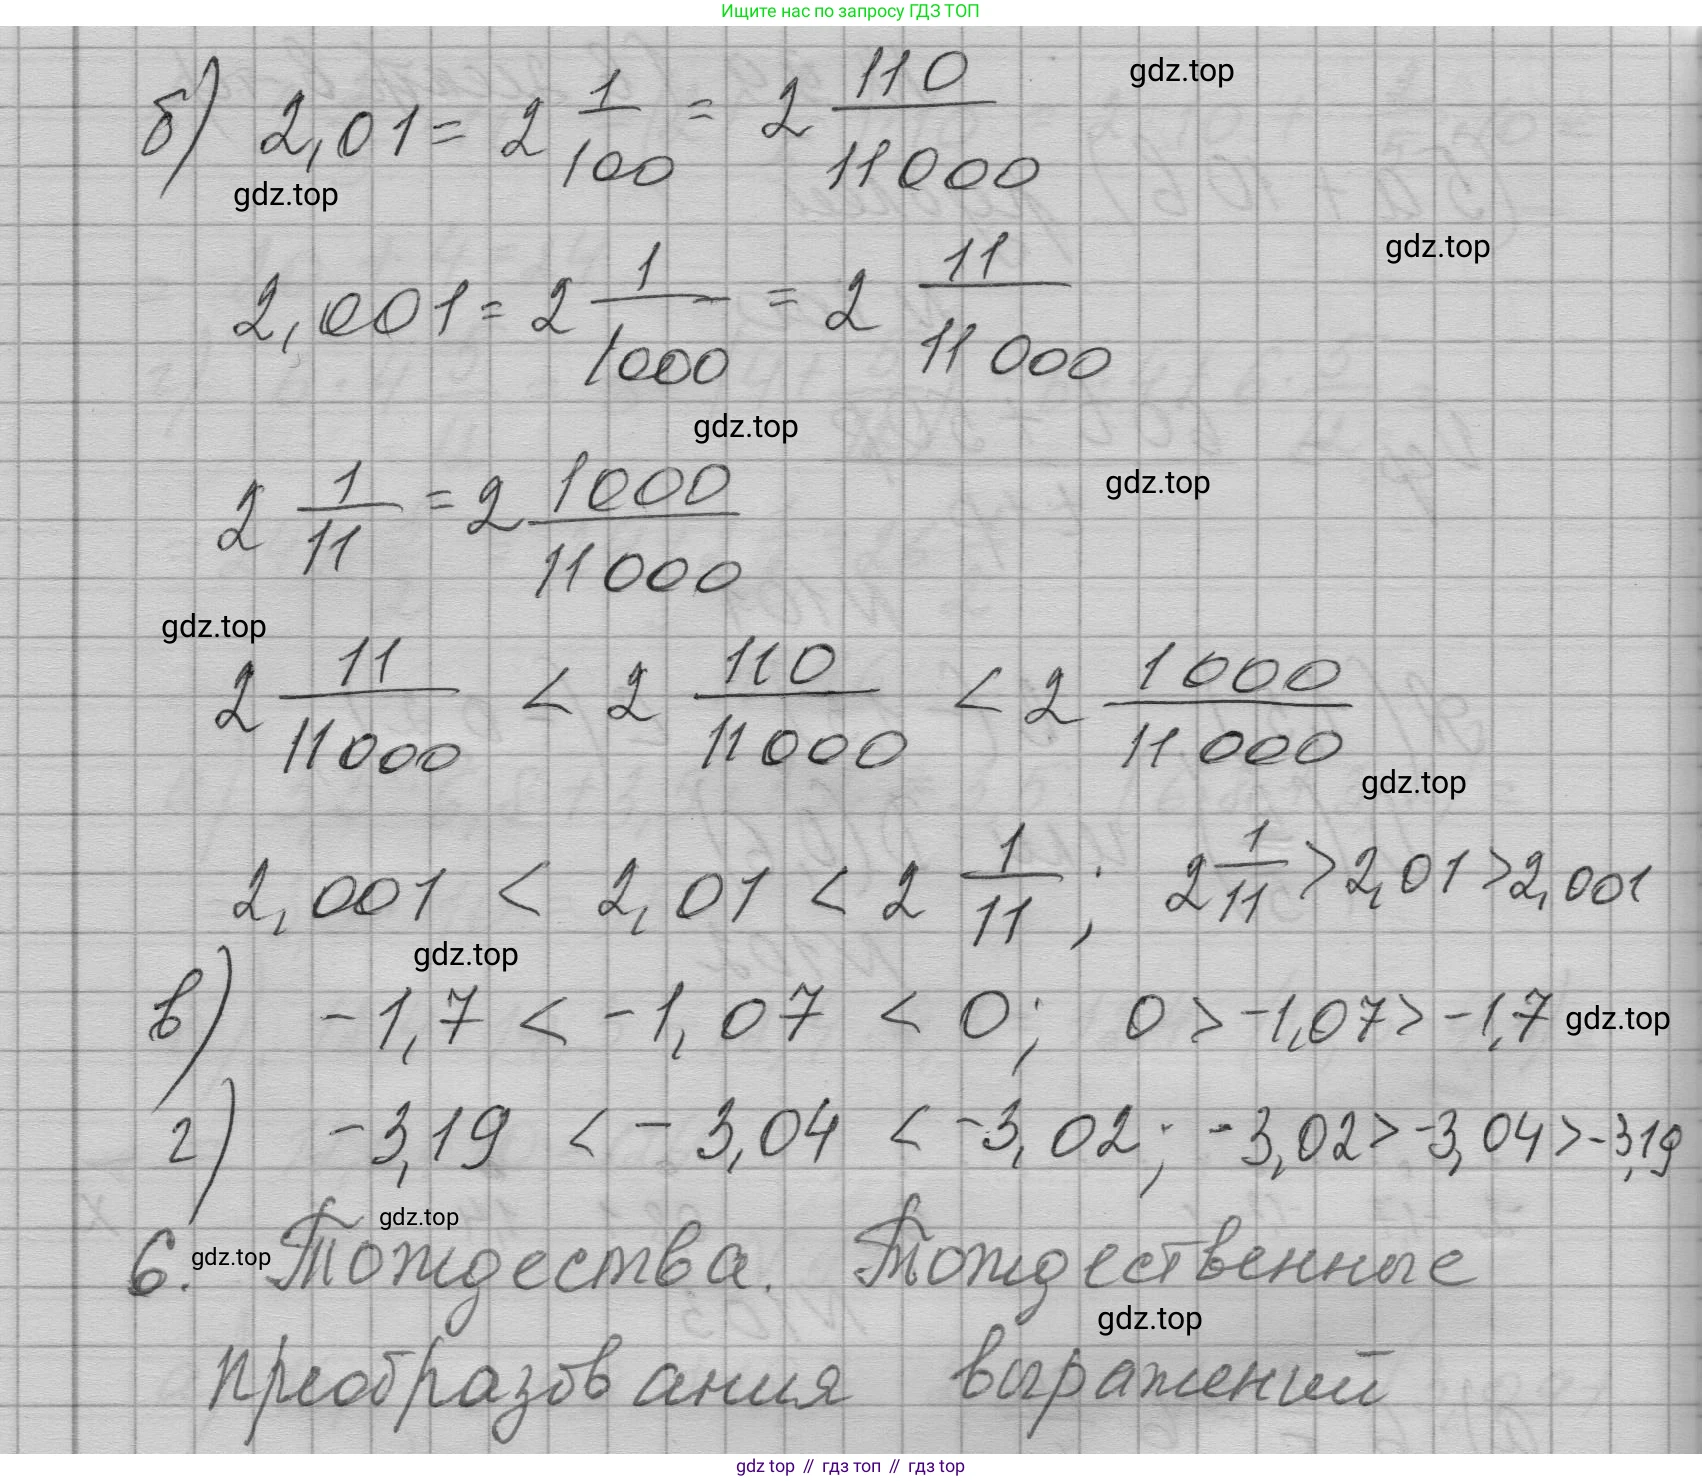 Ищите нас по запросу ГДЗ ТОП
б) 2,01 = 2 1/100 = 2 110/11000
gdz.top
gdz.top
2,001 = 2 1/1000 = 2 11/11000
gdz.top
gdz.top
2 1/11 = 2 1000/11000
gdz.top
gdz.top
2 11/11000 < 2 110/11000 < 2 1000/11000
gdz.top
2,001 < 2,01 < 2 1/11; 2 1/11 > 2,01 > 2,001
gdz.top
в) -1,7 < -1,07 < 0; 0 > -1,07 > -1,7
gdz.top
г) -3,19 < -3,04 < -3,02; -3,02 > -3,04 > -3,19
gdz.top
6. Тождества. Тождественные
gdz.top
gdz.top
преобразования выражений
gdz top // гдз топ // гдз top